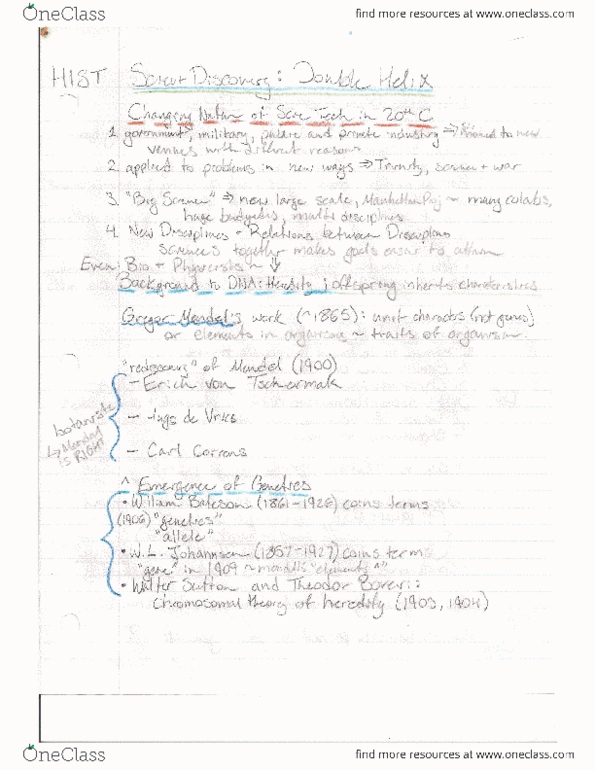 OneClass
find more resources at www.oneclass.com
HIST Discovery: Double Helix
Changing Nature of Tech in 20th C
1. government, military, and private industry ⇒ to new
venues with different reasons
2. applied to problems in new ways ⇒ science + war
3. "Big Science" ⇒ new large scale, Manhattan Proj ~ many colabs,
huge budgets, multi disciplines
4. New Disciplines - Relations between Disciplines
together makes goals easier to attain
Even: Bio + ~ ↓
Background to DNA: Heredity ; offspring inherits characteristics
Gregor Mendel's work (~1865): unit (not genes)
or elements in organism ~ traits of organism.
of Mendel (1900)
- Erich von Tschermak
botanists
- de Vries
↳ Mendel
is RIGHT
- Carl Correns
^ Emergence of Genetics
• William Bateson (1861-1926) coins terms
(1906) "genetics"
"allele"
• W.L. Johannsen (1857-1927) coins terms
"gene" in 1909 ~ "elements"
• Walter Sutton and Theodor Boveri:
Chromosomal theory of heredity (1903, 1904)
OneClass
find more resources at www.oneclass.com